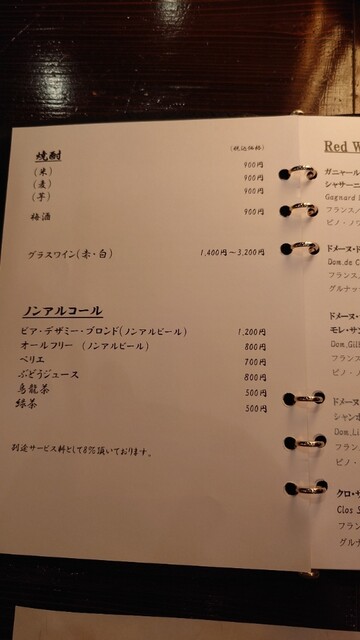 (税込価格)
焼酎
(米) 900円
(麦) 900円
(芋) 900円
梅酒 900円
グラスワイン(赤・白) 1,400円～3,200円
ノンアルコール
ビア・デザミー・ブロンド(ノンアルビール) 1,200円
オールフリー (ノンアルビール) 800円
ペリエ 700円
ぶどうジュース 800円
烏龍茶 500円
緑茶 500円
別途サービス料として8%頂いております。
Red W
ガニャール
シャサーニ
Gagnard
フランス/
ピノ・ノ
ドメーヌ・ド
Dom.de C
フランス
グルナッ
ドメーヌ・
モレ・サン
Dom.
フラン
ピノ・ノ
ドメーヌ
シャンボ
Dom.
フラン
ピノ・
クロ・サ
Clos S
フラン
グルナ